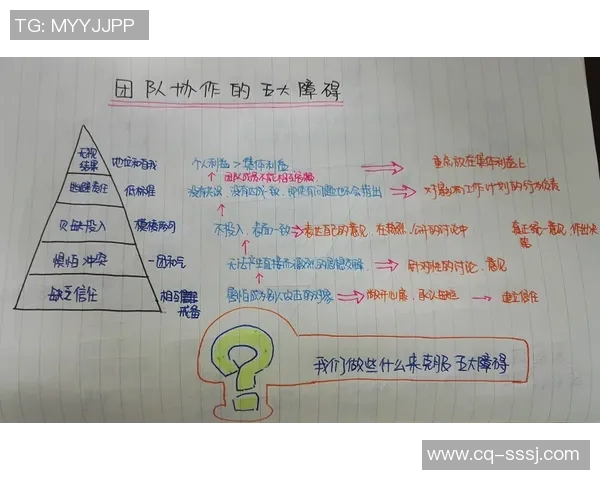 TG: MYYJJPP
团队协作的五大障碍
无视结果 地位和自我 个人利益>集体利益 重点放在集体利益上
团队成员不能相互
逃避责任 低标准 没有达成一致，即使有问题也不会指出 对影响工作计划的行为负责
欠缺投入 模棱两可 不投入，表面一致 表达自己的意见，在激烈、公开的讨论中 真正统一意见，作出决策
惧怕冲突 一团和气 无法产生直接而激烈的思想交锋 针对性的讨论、意见
缺乏信任 相互戒备 害怕成为别人攻击的对象 敞开心扉，承认缺点 建立信任
我们做些什么来克服五大障碍
www.cq-sssj.com